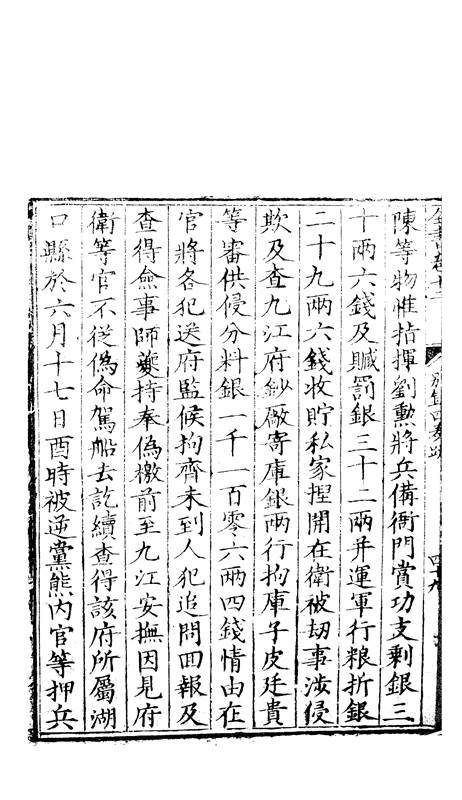 陳等物惟指揮劉勲將兵備衙門賞功支剩銀三
十兩六錢及贓罰銀三十二兩并運軍行粮折銀
二十九兩六錢收貯私家捏開在衛被刧事涉侵
欺及查九江府鈔厰寄庫銀兩行拘庫子皮廷貴
等審供侵分料銀一千一百零六兩四錢情由在
官將各犯送府監候拘齊未到人犯追問回報及
查得僉事師夔持奉偽檄前至九江安撫因見府
衛等官不從偽命駕船去訖續查得該府所屬湖
口縣於六月十七日酉時被逆黨熊内官等押兵